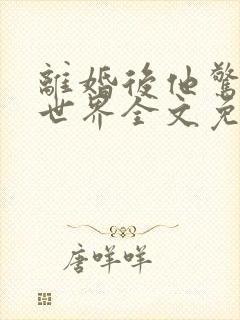 離婚後他驚
世界全文免
唐咩咩